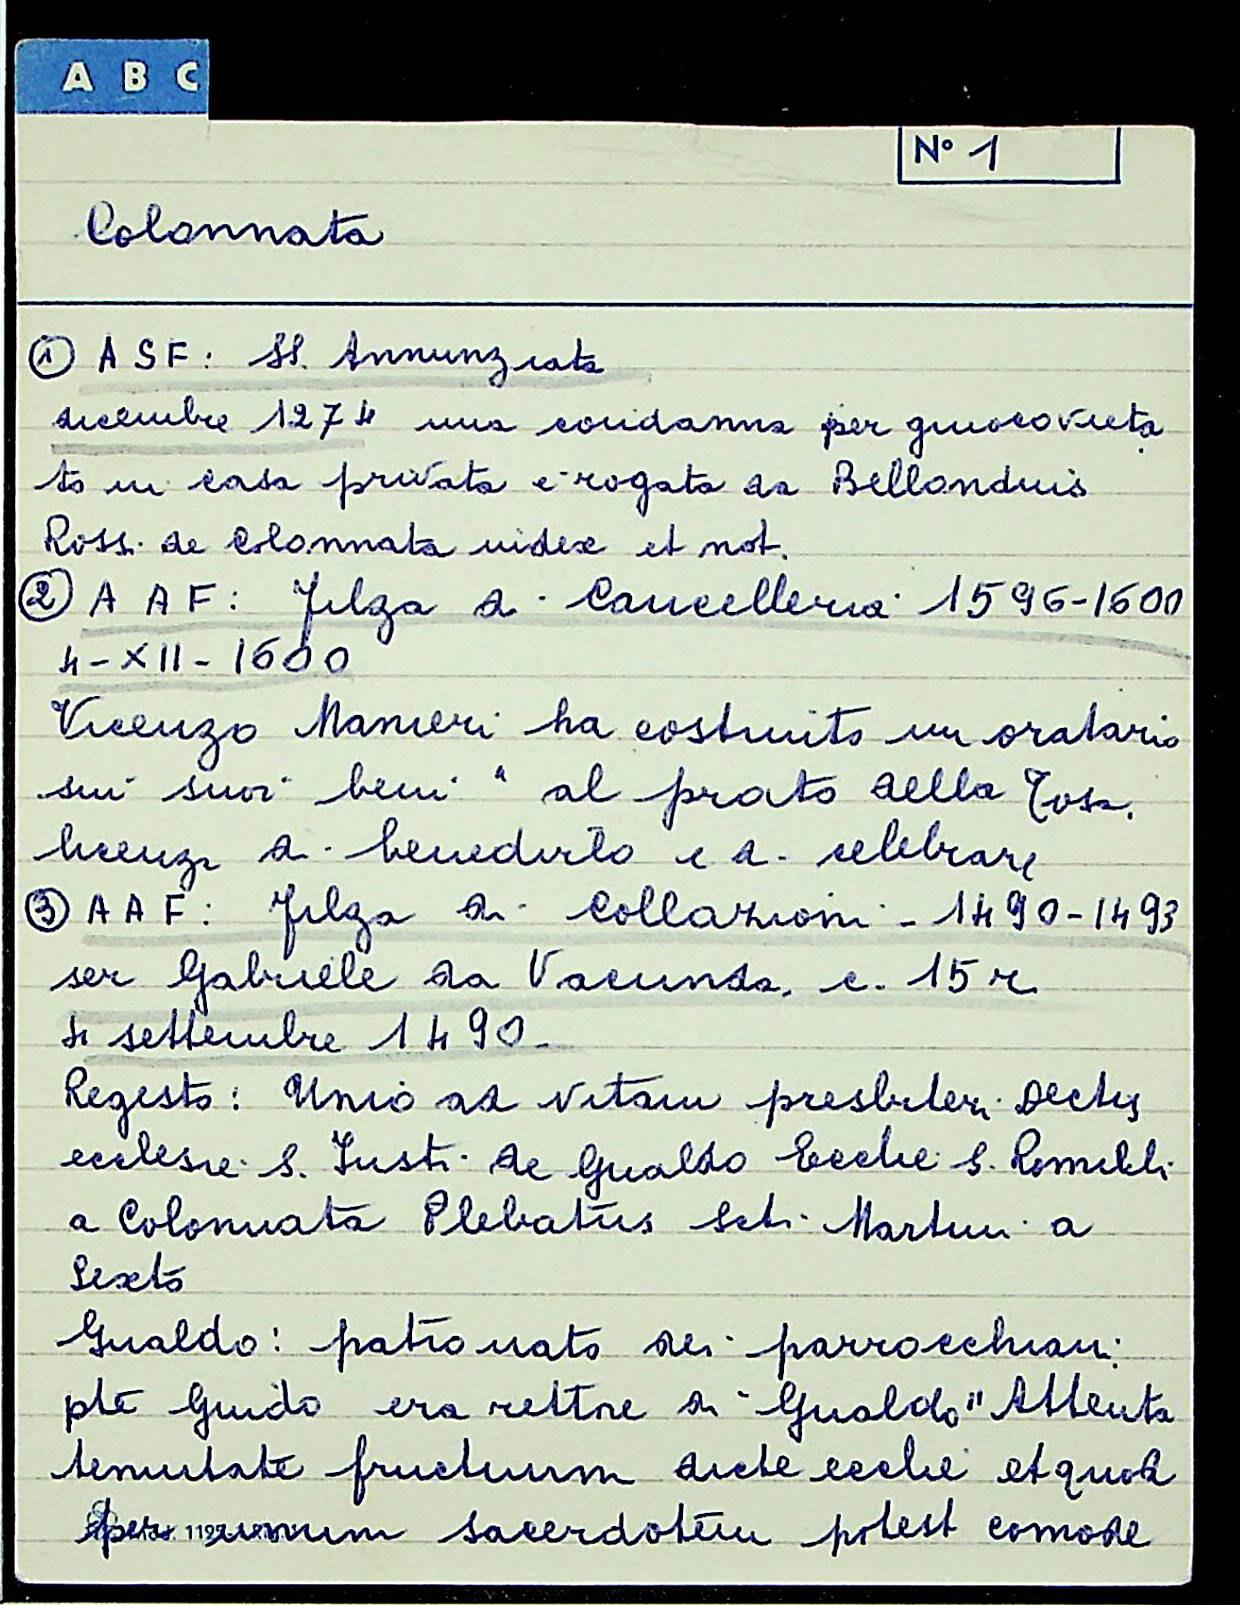 A B C
N° 1
Colonnata
① ASF: SS. Annunziata
dicembre 1274 una condanna per giuoco vieta
to in casa privata e rogata da Bellondinis
Ross. de Colonnata iudex et not.
② AAF: Filza di Cancelleria 1596-1600
4-XII-1600
Vicenzo Manieri ha costruito un oratorio
sui suoi beni " al prato della Tosa.
licenza di benedirlo e di celebrare
③ AAF: Filza di Collazioni - 1490-1493
ser Gabriele da Vacunda, c. 15 r.
4 settembre 1490-
Regesto: Unio ad vitam presbiteri Decty
ecclesie S. Iusti de Gualdo Ecclie S. Romuli
a Colonnata Plebatus Scti Martini a
Sexto
Gualdo: patronato dei parrocchiani
pte Guido era rettore di "Gualdo" Attenta
tenuitate fructuum dicte ecclie et quod
per unum sacerdotem potest comode